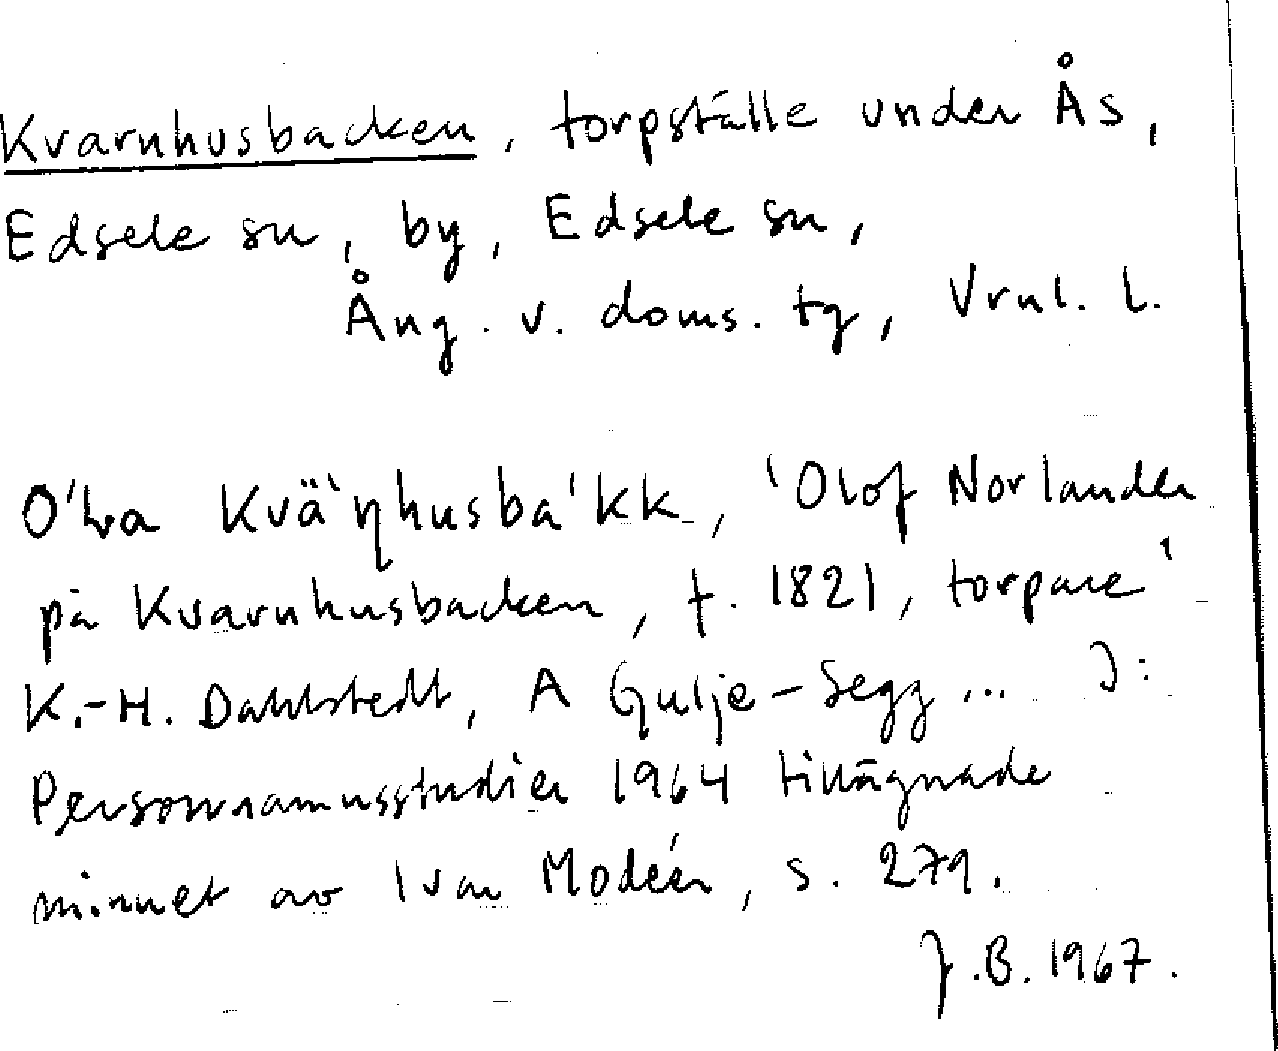 Kvarnhusbacken, torpställe under Ås,
Edsele sn, by, Edsele sn,
Ång. v. doms. tg, Vrnl. l.
O'lva Kvä`ηhusba'kk, 'Olof Norlander
på Kvarnhusbacken, f. 1821, torpare'
K.-H. Dahlstedt, A Gulje-Segg ... I:
Personnamnsstudier 1964 tillägnade
minnet av Ivar Modéer, s. 279.
J.B. 1967.